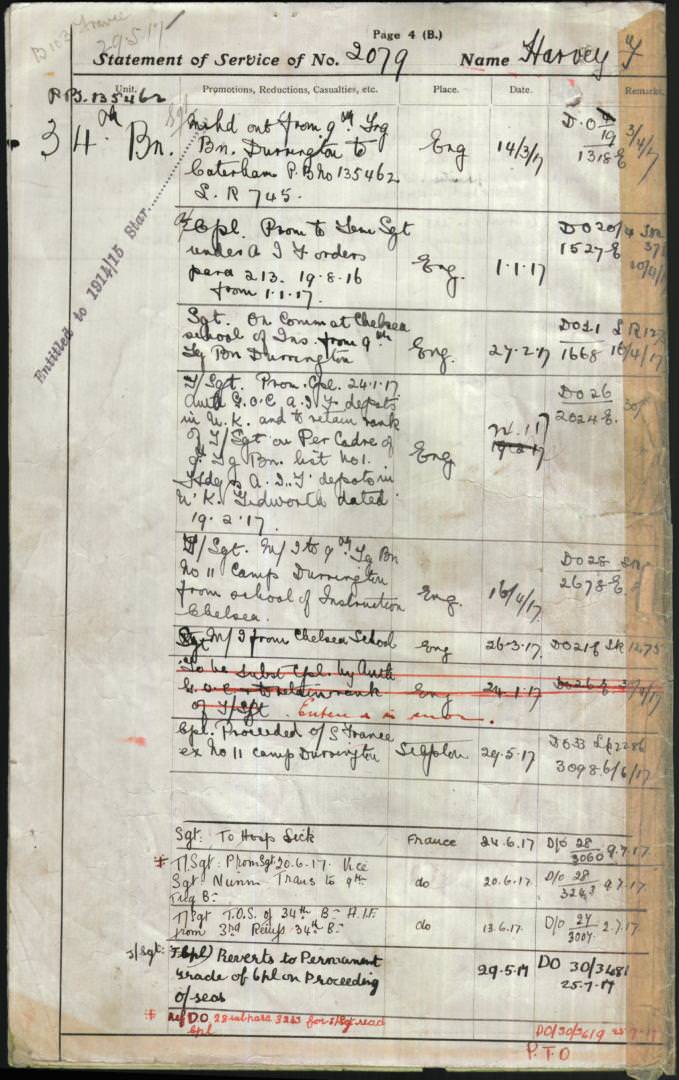 B103 France
29.5.17
Page 4 (B.)
Statement of Service of No. 2079 Name Harvey F
Unit. Promotions, Reductions, Casualties, etc. Place. Date. Remarks.
P.B. 135462
34th Bn.
Entitled to 1914/15 Star
Sgt
Mchd out from 9th Trg
Bn. Durrington to
Caterham P.B No 135462
L. R 745.
Eng 14/3/17
D.O 19
1318 E
3/4/17
Cpl. Prom to Tem Sgt
under A I F orders
para 213. 19.8.16
from 1.1.17.
Eng. 1.1.17
DO 20/4
1527 E
10/4/17
Sgt. On Comm at Chelsea
School of Ins from 9th
Tg Bn Durrington
Eng. 27.2.17
DO 21 L R 127
1668 16/4/17
T/Sgt. Prom. Cpl. 24.1.17
auth G.O.C A.I.F depots
in U.K. and to retain rank
of T/Sgt on Per Cadre of
9th Tg Bn. list No 1.
Hdqrs A.I.F depots in
U.K. Tidworth dated
19.2.17.
Eng
DO 26
2024 E.
T/Sgt. M/I to 9th Tg Bn
No 11 Camp Durrington
from School of Instruction
Chelsea.
Eng. 16/4/17
DO 28
2678 E.
Sgt M/I from Chelsea School Eng 26.3.17 DO 21 E LR 1275
To be Subst Cpl. by Auth
G.O.C. + to retain rank
of T/Sgt. Enter s in error.
Eng 24.1.17 DO 26 E
Cpl. Proceeded o/S France
ex No 11 Camp Durrington
29.5.17
DO 33 LR 2286
3098 E 6/6/17
Sgt. To Hosp Sick France 24.6.17 D/O 28/3060 9.7.17
# T/Sgt: Prom Sgt 20.6.17. Vice
Sgt Nunn Trans to 9th
Trg Bn
do 20.6.17 D/O 28/3263 9.7.17
T/Sgt T.O.S. of 34th Bn A.I.F
from 3rd Reinfs 34th Bn
do 13.6.17 D/O 27/3007 2.7.17
T/Sgt: (Cpl) Reverts to Permanent
Grade of Cpl on Proceeding
O/seas
29.5.17 DO 30/3681
25.7.17
# Ref DO 28 sub para 3263 for T/Sgt read
Cpl
DO/30/3619 25.7.17
P.T.O